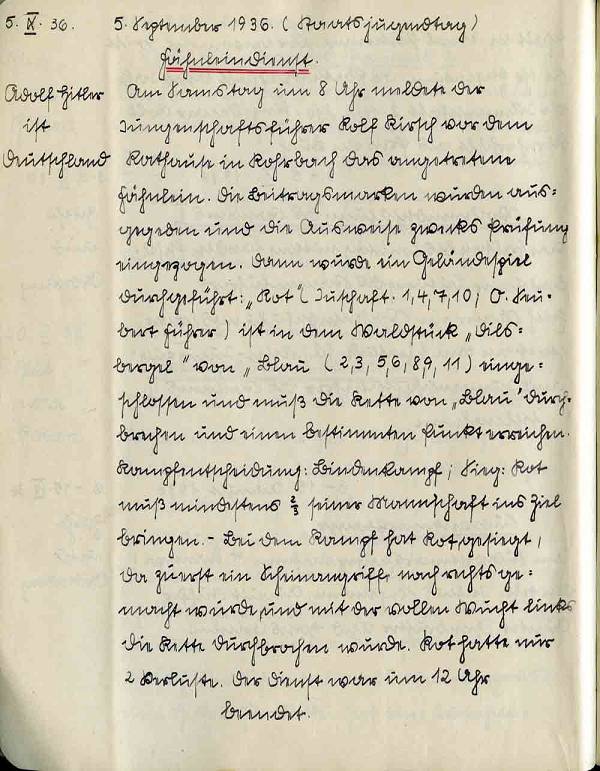 5. IX. 36.
5. September 1936. (Staatsjugendtag)
Fähnleindienst.
Adolf Hitler
ist
Deutschland
Am Samstag um 8 Uhr meldete der
Jungenschaftsführer Rolf Kirsch vor dem
Rathause in Rohrbach das angetretene
Fähnlein. Die Beitragsmarken wurden aus=
gegeben und die Ausweise zwecks Prüfung
eingezogen. Dann wurde ein Geländespiel
durchgeführt: „Rot" (Juschaft. 1,4,7,10; O. Neu=
bert Führer) ist in dem Waldstück „Dils=
bergel" von „Blau (2,3, 5,6, 8,9, 11) einge=
schlossen und muß die Kette von „Blau" durch=
brechen und einen bestimmten Punkt erreichen.
Kampfentscheidung: Bindenkampf; Sieg: Rot
muß mindestens 2/3 seiner Mannschaft ins Ziel
bringen. - Bei dem Kampf hat Rot gesiegt,
da zuerst ein Scheinangriff nach rechts ge=
macht wurde, und mit der vollen Wucht links
die Kette durchbrochen wurde. Rot hatte nur
2 Verluste. Der Dienst war um 12 Uhr
beendet.